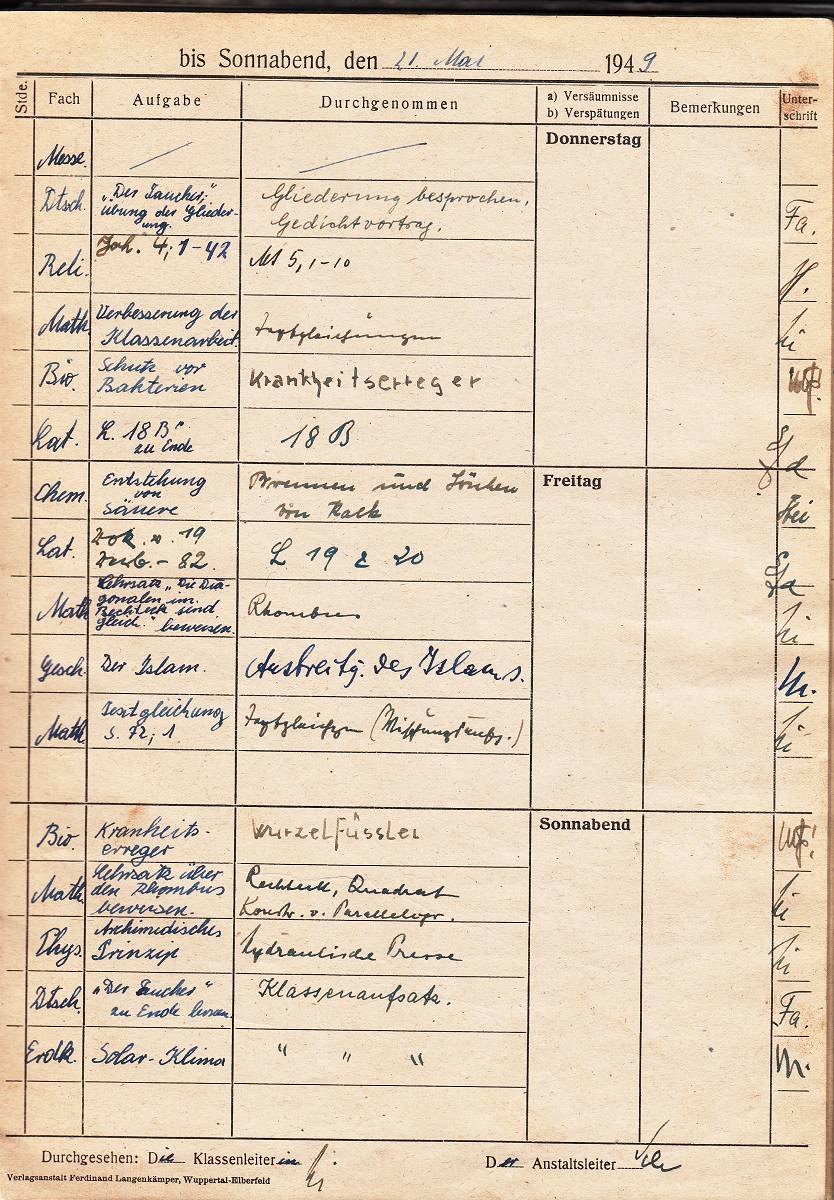 bis Sonnabend, den 21. Mai 1949
Stde. Fach Aufgabe Durchgenommen a) Versäumnisse b) Verspätungen Bemerkungen Unter-schrift
Donnerstag
Messe.
Dtsch. „Der Taucher;" Gliederung besprochen, Fa.
übung der Glieder- Gedichtvortrag.
ung.
Reli. Joh. 4; 1-42 Mt 5, 1-10 H.
Math. Verbesserung der
Klassenarbeit. Textgleichungen
Bio. Schutz vor Krankheitserreger
Bakterien
Lat. L. 18 B" 18 B
zu Ende
Freitag
Chem. Entstehung Brennen und Löschen
von von Kalk
Säuere
Lat. Vok. v. 19 L 19 & 20
- 82.
Math. Lehrsatz „Die Dia- Rhombus
gonalen im
Rechteck sind
gleich." beweisen.
Gesch. Der Islam. Ausbreitg. des Islams. M.
Math. Textgleichung Textgleichgn (Mischungsaufg.)
S. 72; 1
Sonnabend
Bio. Kranheits- Wurzelfüssler
erreger
Math. Lehrsatz über Rechteck, Quadrat
den Rhombus Konstr. v. Parallelogr.
beweisen.
Phys. Archimedisches hydraulische Presse
Prinzip
Dtsch. „Der Taucher" Klassenaufsatz. Fa.
zu Ende lernen.
Erdk. Solar-Klima " " " M.
Durchgesehen: Die Klassenleiterin Der Anstaltsleiter
Verlagsanstalt Ferdinand Langenkämper, Wuppertal-Elberfeld